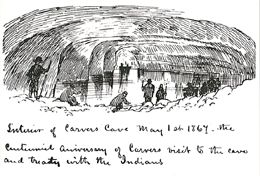 Interior of Carvers Cave May 1st 1867. the
Centennial Aniversary of Carvers visit to the cave
and treaty with the Indians